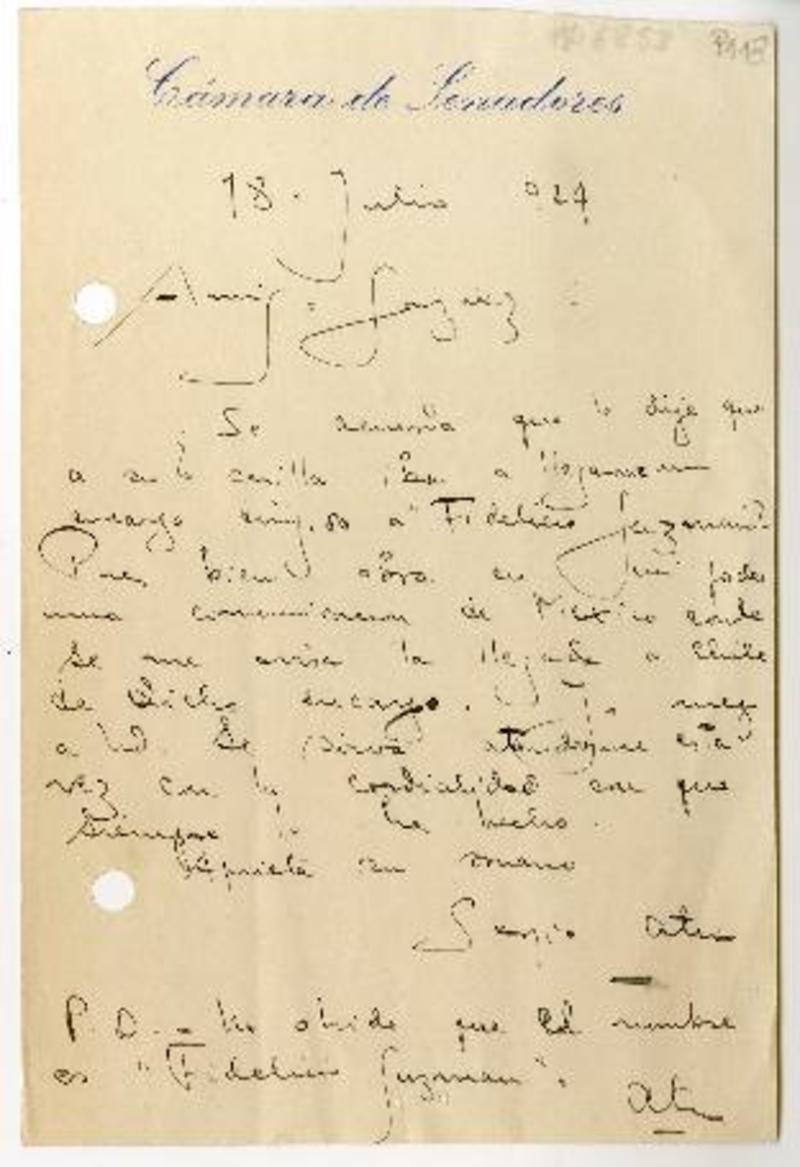 Cámara de Senadores
18 - Julio 924
Amigo
¿Se acuerda que le dije que
a su casilla iba a llegarme un
encargo dirigido a "Fidelino Guzman"?
Pues bien obra en mi poder
una comunicacion de Mexico donde
se me avisa la llegada a Chile
de dicho encargo. Yo
a Ud. se sirva atenderme esta
vez con la cordialidad con que
siempre lo ha hecho.
aprieta su mano
Sergio
P.D. - No olvide que el nombre
es "Fidelino Guzman".